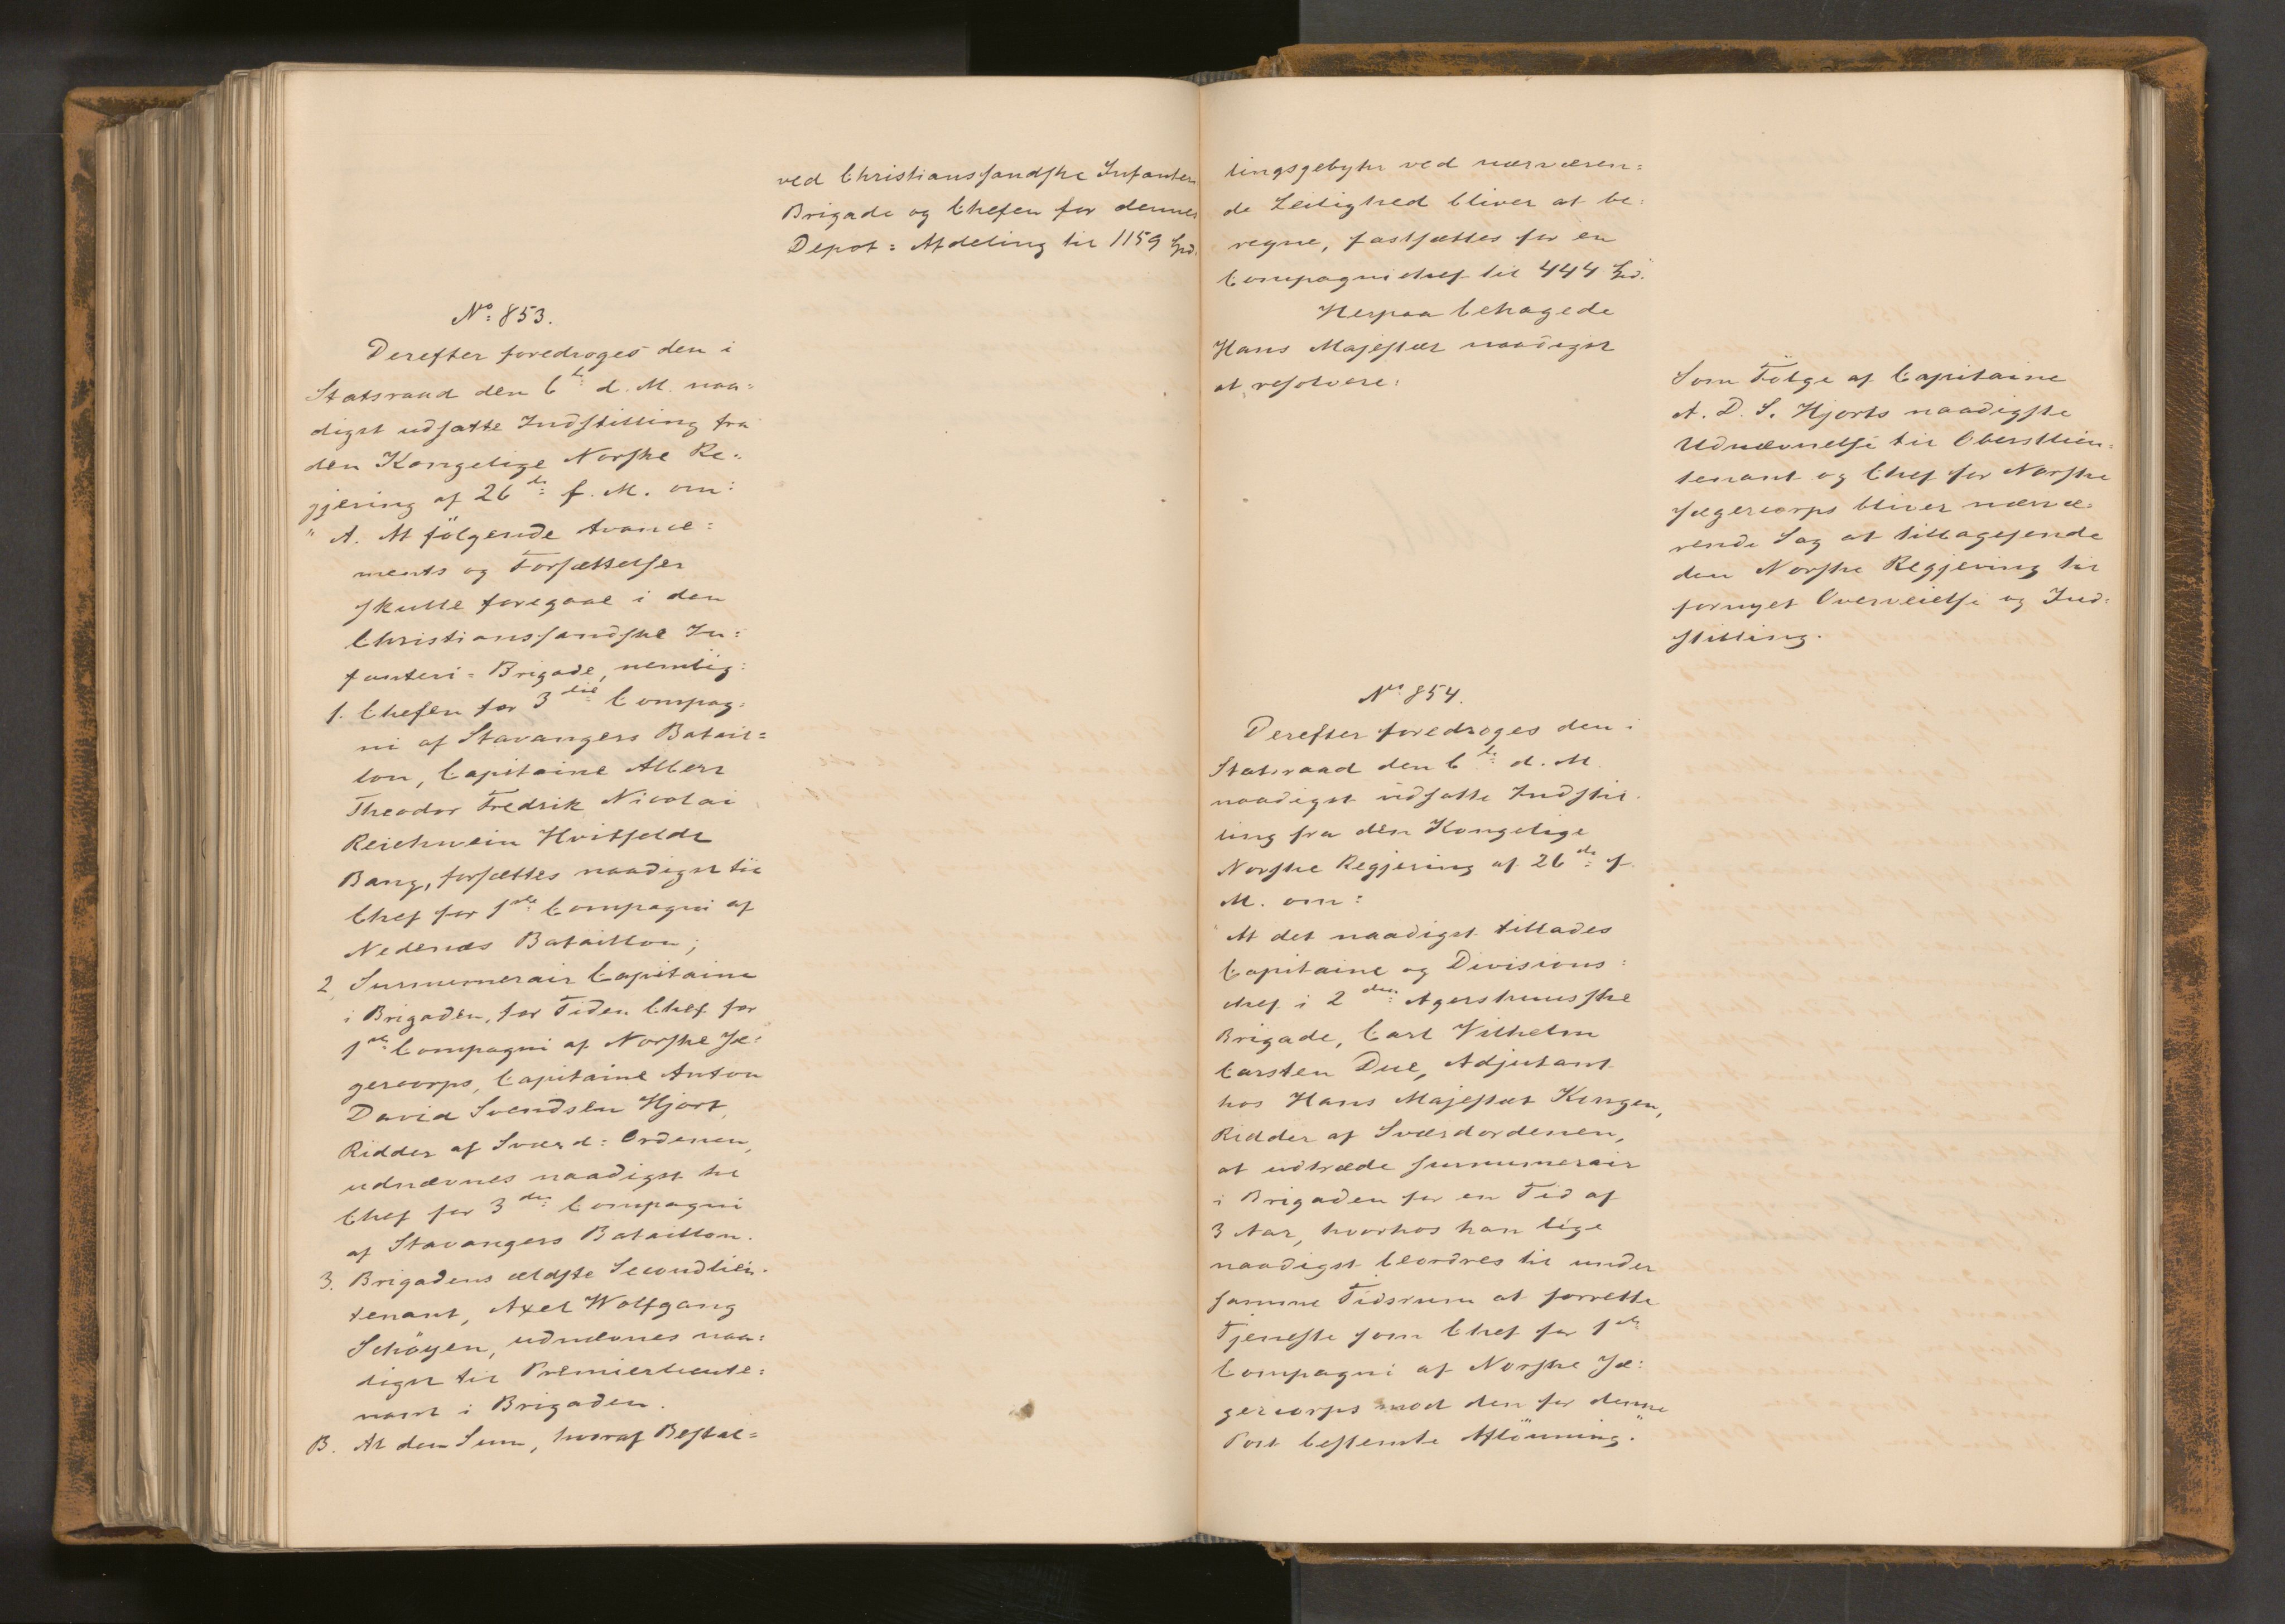 ved Christianssandske Infanteri
Brigade og Chefen for dennes
Depot= Afdeling til 1159 Spd.
No: 853.
Derefter foredroges den i
Statsraad den 6te d. M. naa=
digst udsatte Indstilling fra
den Kongelige Norske Re=
gjering af 26de f. M. om:
" A. At følgende Avance=
ments og Forsættelser
skulle foregaae i den
Christianssandske In=
fanteri= Brigade, nemlig:
1. Chefen for 3die Compag=
ni af Stavangers Batail=
lon, Capitaine Albert
Theodor Fredrik Nicolai
Reichwein Hvitfeldt
Bang, forsættes naadigst til
Chef for 1ste Compagni af
Nedenæs Bataillon;
2, Surnumerair Capitaine
i Brigaden, for Tiden Chef for
1ste Compagni af Norske Jæ=
gercorps, Capitaine Anton
David Svendsen Hjort,
Ridder af Sværd= Ordenen,
udnævnes naadigst til
Chef for 3die Compagni
af Stavangers Bataillon.
3. Brigadens ældste Secondlieu=
tenant, Axel Wolfgang
Schøyen, udnævnes naa=
digst til Premierlieute=
nant i Brigaden.
B. At den Sum, hvoraf Bestal=
lingsgebyhr ved nærværen=
de Leilighed bliver at be=
regne, fastsættes for en
Compagnichef til 444 Spd.
Herpaa behagede
Hans Majestæt naadigst
at resolvere:
Som Følge af Capitaine
A. D. S. Hjorts naadigste
Udnævnelse til Oberstlieu=
tenant og Chef for Norske
Jægercorps bliver nærvæ=
rende Sag at tilbagesende
den Norske Regjering til
fornyet Overveielse og Ind=
stilling.
No: 854.
Derefter foredroges den i
Statsraad den 6te d. M.
naadigst udsatte Indstil=
ling fra den Kongelige
Norske Regjering af 26de f.
M. om:
"At det naadigst tillades
Capitaine og Divisions=
chef i 2den Agershuusske
Brigade, Carl Vilhelm
Carsten Due, Adjutant
hos Hans Majestæt Kongen,
Ridder af Sværdordenen,
at udtræde surnumerair
i Brigaden for en Tid af
3 Aar, hvorhos han lige
naadigst beordres til under
samme Tidsrum at forrette
Tjeneste som Chef for 1ste
Compagni af Norske Jæ=
gercorps mod den for denne
Post bestemte Aflønning."